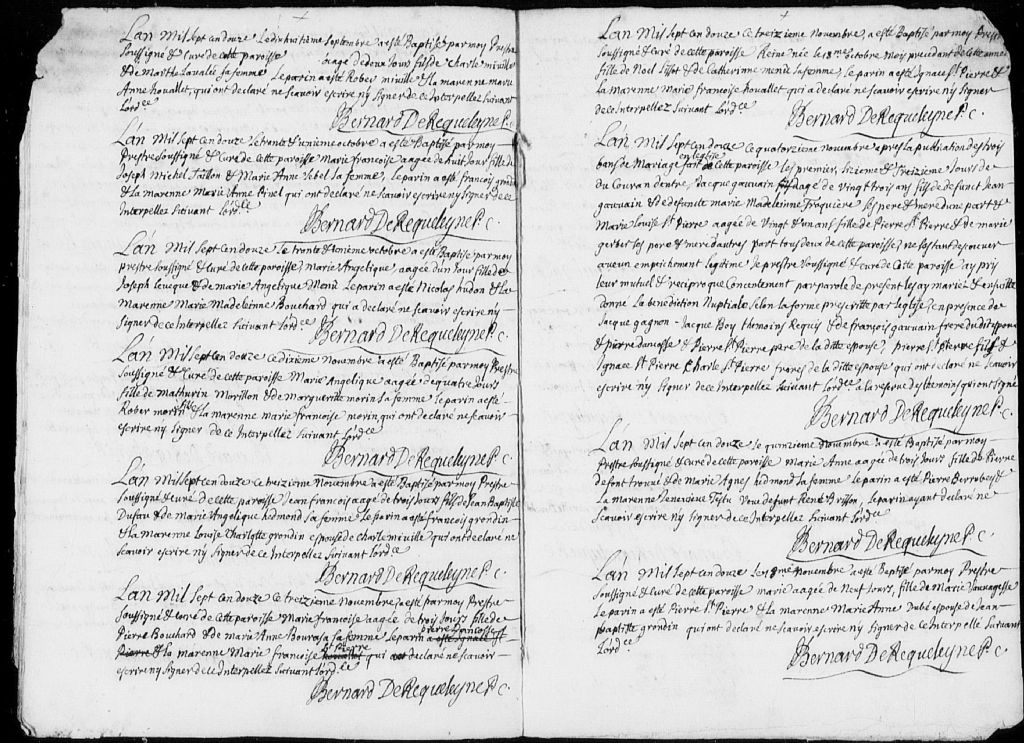 Lán Mil sept cen douze Le dixhuitieme septembre a esté Baptisé par moy Prestre
soussigné & Curé de cette paroisse aagé de deux Jours fils de Charle miville
& de Marthe sa femme Le parin a esté Rober miville & la marenne marie
Anne houallet, qui ont declaré ne scavoir escrire n'y signer de ce Interpellez suivant
Lord.ce
Bernard De Requeleyne P. c.
Lán Mil sept cen douze Le trente & unieme octobre a esté Baptisé par moy
Prestre soussigné & Curé de cette paroisse Marie francoise aagée de huit Jour fille de
Joseph Michel Taillon & Marie Anne Lebel sa femme, Le parin a esté francois grondin
& la marenne Marie Anne Pinel qui ont declaré ne scavoir escrire n'y signer de ce
Interpellez suivant Lord.ce
Bernard De Requeleyne P. c
Lán Mil sept cen douze Le trente & unieme octobre a esté Baptisé par moy
prestre soussigné & curé de cette paroisse, Marie Angelique, aagée dun Jour fille de
Joseph Leveque & de marie Angelique Menü Le parin a esté Nicolas hudon & La
Marenne Marie Madeleinne Bouchard qui a declaré ne scavoir escrire n'y
signer de ce Interpellez suivant Lord.ce
Bernard De Requeleyne P. c
Lán Mil sept cen douze Ce dixieme Novembre a esté Baptisé par moy Prestre
soussigné & Curé de cette paroisse Marie Angelique aagée de quatre Jours
fille de mathurin Morillon & de Margueritte morin sa femme le parin a esté
Rober morin fils & la marenne marie francoise morin qui ont declaré ne scavoir
escrire n'y signer de ce Interpellez suivant Lord.ce
Bernard De Requeleyne P. c
Lán Mil sept cen douze ce treizieme Novembre a esté Baptisé par moy Prestre
soussigné & curé de cette paroisse Jean francois aagé de trois Jours fils de Jean Baptiste
Dufau & de marie Angelique hidmond sa femme Le parin a esté francois grondin
& la marenne Louise Charlotte grondin espouse de charle miville qui ont declaré ne
scavoir escrire n'y signer de ce Interpellez suivant Lord.ce
Bernard De Requeleyne P. c.
Lán Mil sept cen douze ce treizieme Novembre a esté par moy Prestre
soussigné & curé de cette paroisse Marie francoise aagée de trois Jours fille de
Pierre Bouchard & de marie Anne Bourassa sa femme Le parin pierre francoise a esté
Pierre & la marenne Marie francoise St pierre qui ont declaré ne scavoir
escrire n'y signer de ce Interpellez suivant Lord.ce
Bernard De Requeleyne P. c.
Lán Mil sept cen douze ce treizieme Novembre, a esté Baptisé par moy Prestre
soussigné & curé de cette paroisse Reine née le octobre Mois precedant de cette année
fille de Noel Lissot & de Catherinne menü sa femme, Le parin a esté Ignace St Pierre &
La marenne Marie francoise houallet qui a declaré ne scavoir escrire n'y signer
de ce Interpellez suivant Lord.ce
Bernard De Requeleyne P. c.
Lán Mil sept cen douze ce quatorzieme Novembre apres la publication des trois
bans de Mariage fait en leglise de cette paroisse les premier, sizieme & treizieme Jours de
du Couran dentre, Jacque gauvain aagé de Vingt trois ans fils de defunt Jean
gauvain & de defeunte marie Madeleinne Troquiere ses pere & mere dune part &
Marie Louise St Pierre aagée de Vingt & un ans fille de Pierre St Pierre & de marie
gerber ses pere & mere dautres part tous deux de cette paroisse, ne sestant descouver
aucun empechement legitime Je prestre soussigné & curé de Cette paroisse ay pris
leur mutuel & reciproque Consentement par parole de present les ay mariés & ensuitte
donné La benediction Nuptiale selon la forme prescritte par leglise, en presence de
Jacque gagnon Jacque Boy themoins Requis & de françois gauvain frere du dit espoux
& pierre & Pierre St Pierre pere de la ditte espouse, pierre St pierre fils &
Ignace St Pierre Charle St Pierre freres de la ditte espouse qui ont declaré ne scavoir
escrire n'y signer de ce Interpellez suivant Lord.ce a la reserve des themoins qui ont signé
Bernard De Requeleyne P. c.
Lán Mil sept cen douze le quinzieme Novembre a esté Baptisé par moy
Prestre soussigné & curé de cette paroisse Marie Anne aagée de trois Jours fille de Pierre
de font trouvé & de marie Agnes hidmond sa femme Le parin a esté Pierre Berrubey &
La marenne Genevieve Testu Veu defunt René Brisson, le parin ayant declaré ne
scavoir escrire n'y signer de ce Interpellez suivant Lord.ce
Bernard De Requeleyne P. c.
Lán Mil sept cen douze Le Novembre a esté Baptisé par moy Prestre
soussigné & curé de cette paroisse marie aagée de Neuf Jours, fille de Marie sauvagesse
Le parin a esté Pierre St Pierre & la marenne Marie Anne Jubé espouse de Jean
baptiste grondin qui ont declaré ne scavoir escrire n'y signer de ce Interpelle suivant
Lord.ce
Bernard De Requeleyne P. c